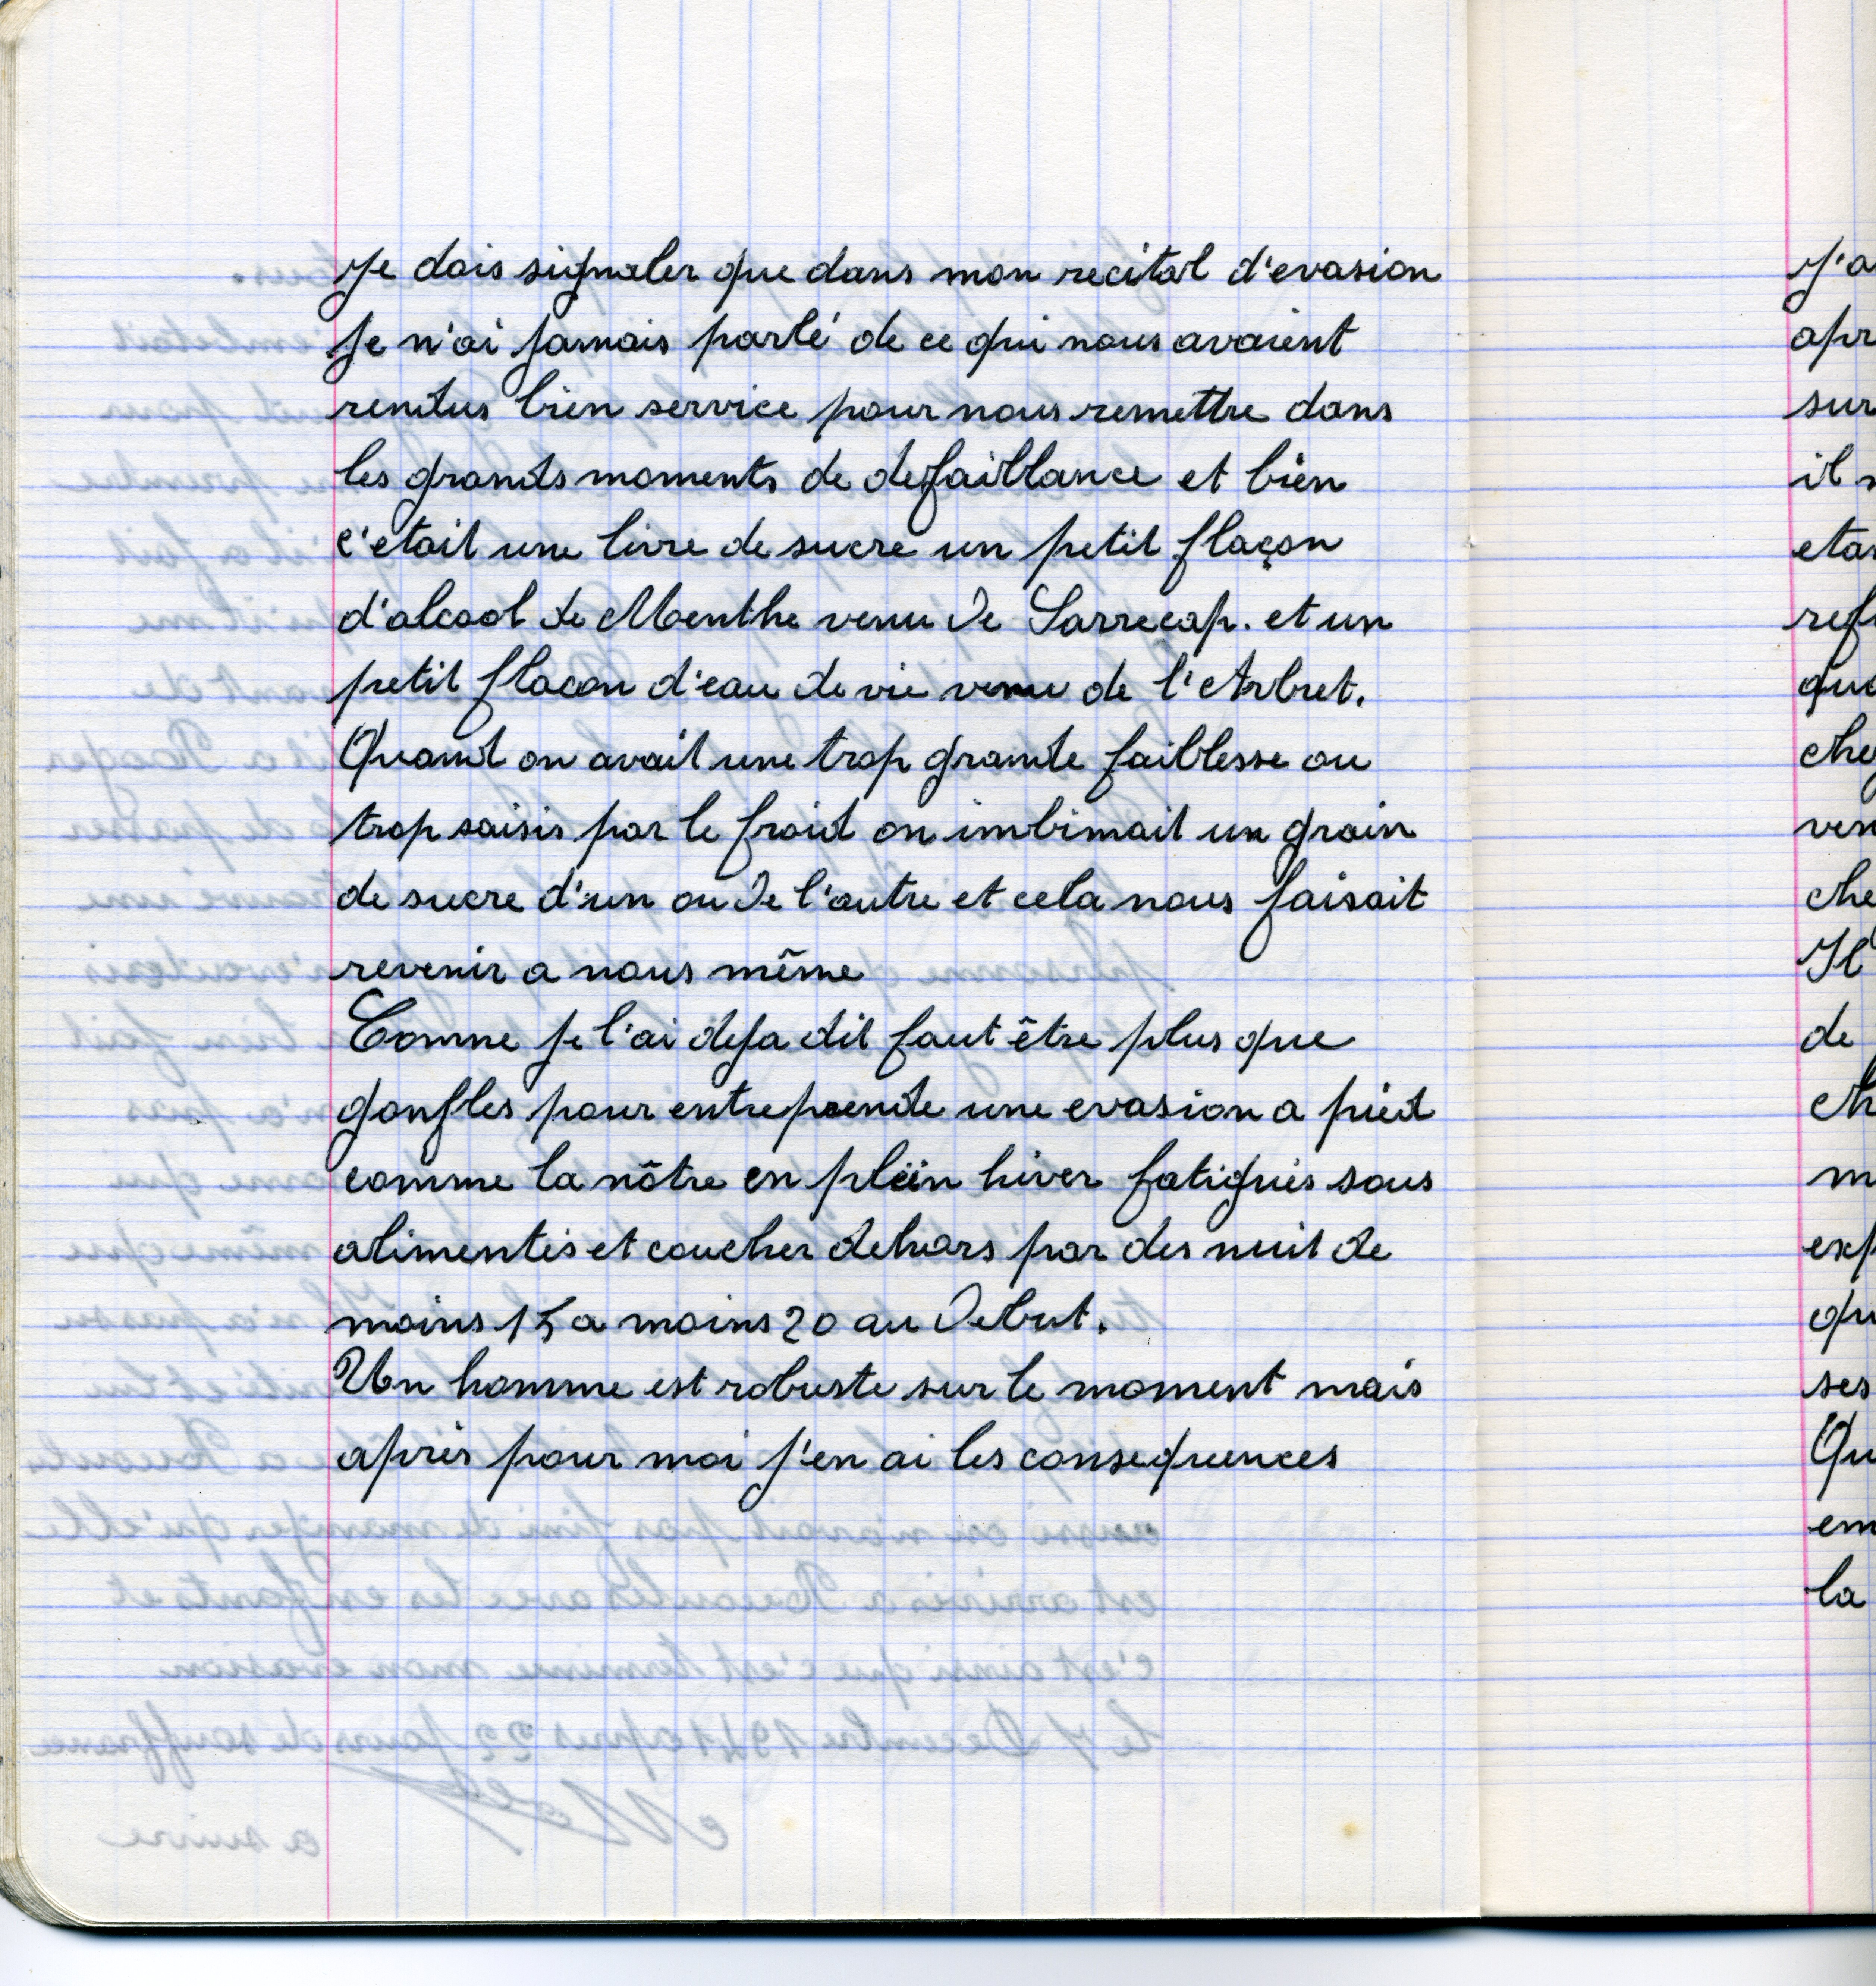 Je dois signaler que dans mon recital d'evasion
Je n'ai jamais parlé de ce qui nous avaient
rendus bien service pour nous remettre dans
les grands moments de defaillance et bien
c'etait une livre de sucre un petit flaçon
d'alcool de Menthe venu de Sarrecap. et un
petit flacon d'eau de vie venu de l'Arbret.
Quand on avait une trop grande faiblesse ou
trop saisis par le froid on imbimait un grain
de sucre d'un ou de l'autre et cela nous faisait
revenir a nous même
Comme je l'ai deja dit faut être plus que
gonfles pour entreprende une evasion a pied
comme la nôtre en plein hiver fatigués sous
alimentés et coucher dehors par des nuit de
moins 15 a moins 20 au Debut.
Un homme est robuste sur le moment mais
après pour moi j'en ai les consequences
J'a
apr
sur
il
etai
ref
que
che
ven
che
Il
de
ch
m
exp
qu
ses
Qu
em
la